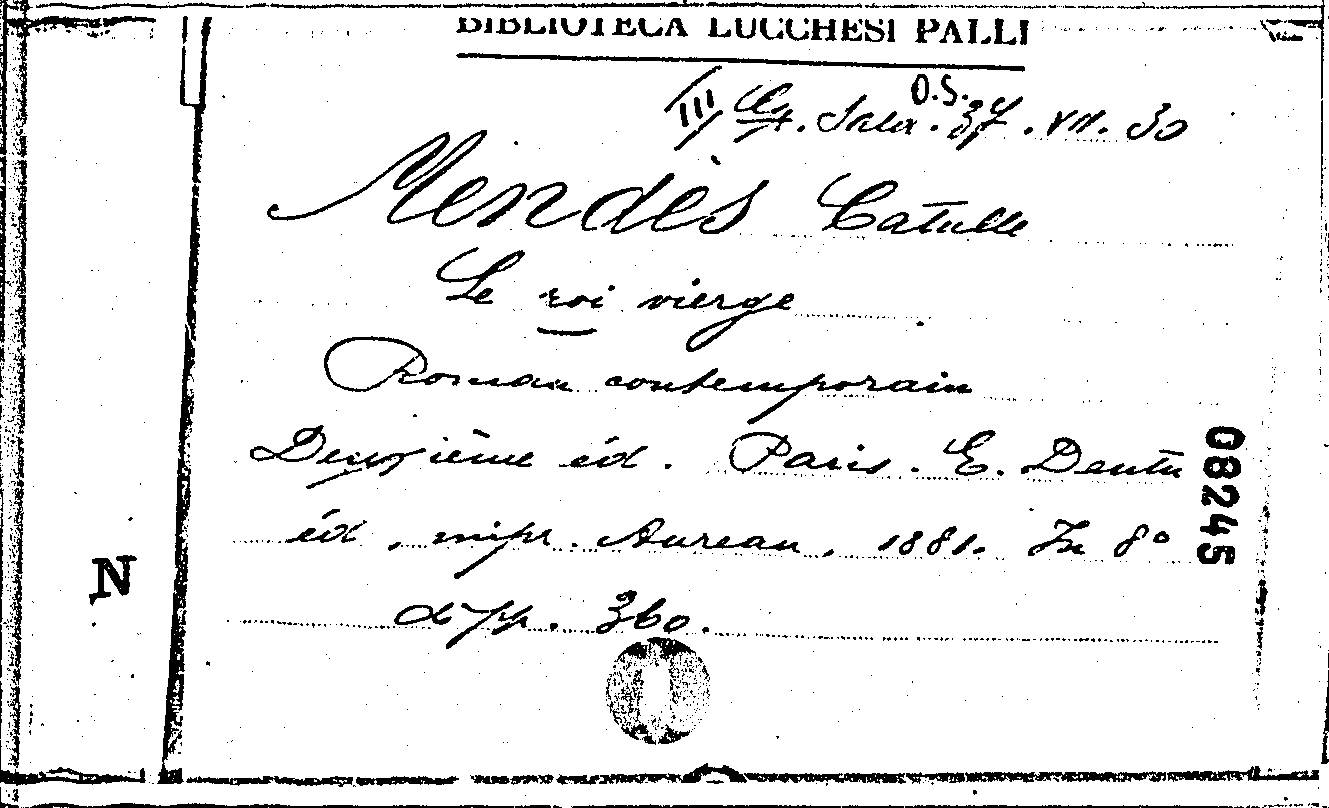 BIBLIOTECA LUCCHESI PALLI
O.S.
III Sala. 37. VII. 30
Mendès Catulle
Le roi vierge
Roman contemporain
Deuxième éd. Paris. E. Dentu
éd, impr. Aureau, 1881. In 8°
di pp. 360.
08245
N